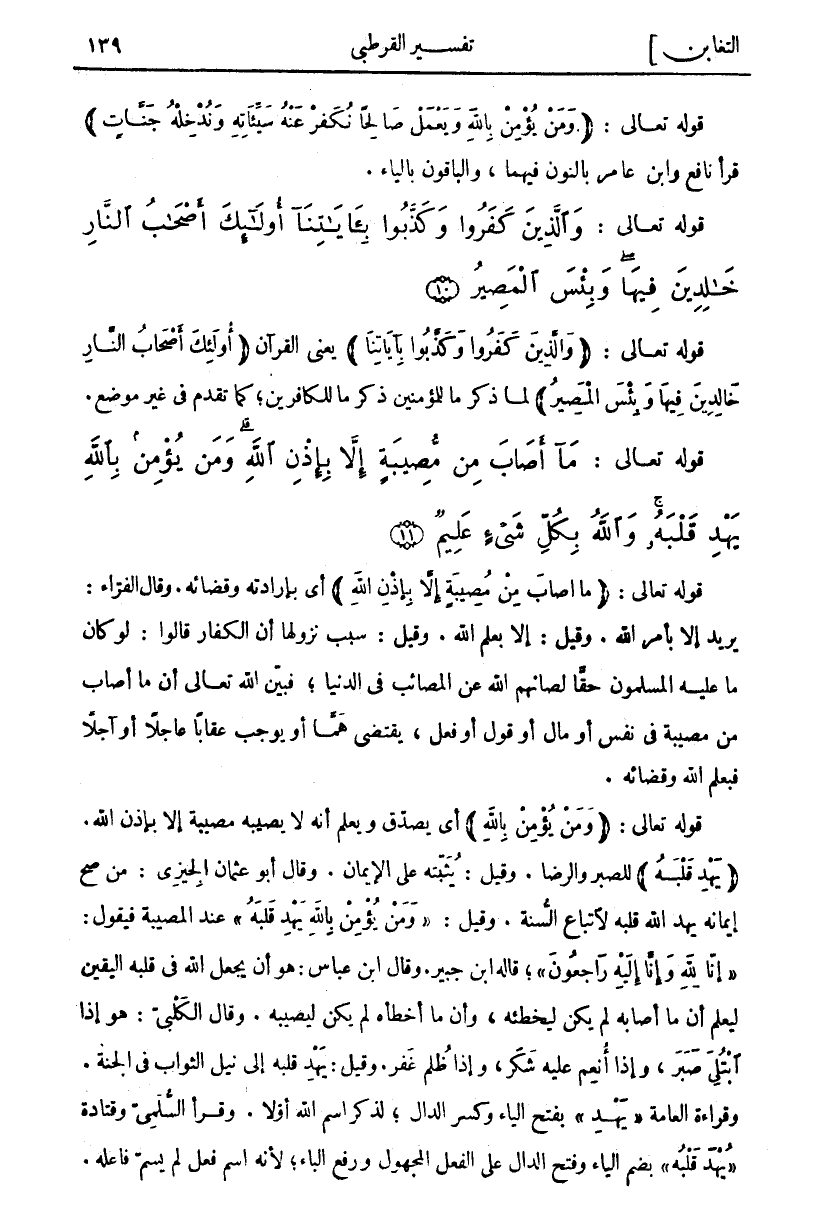 التغابن [ تفسير القرطبى ١٣٩
قوله تعالى : ﴿ وَمَنْ يُؤْمِنْ بِاللهِ وَيَعْمَلْ صَالِحًا نُكَفِّرْ عَنْهُ سَيِّئَاتِهِ وَنُدْخِلْهُ جَنَّاتٍ ﴾
قرأ نافع وابن عامر بالنون فيهما ، والباقون بالياء .
قوله تعالى : وَٱلَّذِينَ كَفَرُوا وَكَذَّبُوا بِـَٔايَـٰتِنَآ أُولَـٰٓئِكَ أَصْحَـٰبُ ٱلنَّارِ
خَـٰلِدِينَ فِيهَا ۖ وَبِئْسَ ٱلْمَصِيرُ ⑩
قوله تعالى : ﴿ وَالَّذِينَ كَفَرُوا وَكَذَّبُوا بِآيَاتِنَا ﴾ يعنى القرآن ﴿ أُولَئِكَ أَصْحَابُ النَّارِ
خَالِدِينَ فِيهَا وَبِئْسَ الْمَصِيرُ ﴾ لمـا ذكر ما للمؤمنين ذكر ما للكافرين؛ كما تقدم فى غير موضع.
قوله تعالى : مَآ أَصَابَ مِن مُّصِيبَةٍ إِلَّا بِإِذْنِ ٱللَّهِ ۗ وَمَن يُؤْمِنۢ بِٱللَّهِ
يَهْدِ قَلْبَهُۥ ۚ وَٱللَّهُ بِكُلِّ شَىْءٍ عَلِيمٌ ⑪
قوله تعالى : ﴿ ما اصابَ مِنْ مُصِيبَةٍ إِلَّا بِإِذْنِ اللهِ ﴾ أى بإرادته وقضائه. وقال الفرّاء :
يريد إلا بأمر الله . وقيل : إلا بعلم الله . وقيل : سبب نزولها أن الكفار قالوا : لو كان
ما عليـه المسلمون حقًّا لصانهم الله عن المصائب فى الدنيا ؛ فبيّن الله تعـالى أن ما أصاب
من مصيبة فى نفس أو مال أو قول أو فعل ، يقتضى هَمًّـا أو يوجب عقابًا عاجلًا أو آجلًا
فبعلم الله وقضائه .
قوله تعالى : ﴿ وَمَنْ يُؤْمِنْ بِاللهِ ﴾ أى يصدّق ويعلم أنه لا يصيبه مصيبة إلا بإذن الله.
﴿ يَهْدِ قَلْبَـهُ ﴾ للصبر والرضا . وقيل : يُثَبّته على الإيمان . وقال أبو عثمان الجيزى : من صح
إيمانه يهد الله قلبه لاتباع السُّنة . وقيل : « وَمَنْ يُؤْمِنْ بِاللهِ يَهْدِ قَلْبَهُ » عند المصيبة فيقول :
« إنّا لِلهِ وَإنَّا إلَيْهِ رَاجِعُونَ» ؛ قاله ابن جبير. وقال ابن عباس : هو أن يجعل الله فى قلبه اليقين
ليعلم أن ما أصابه لم يكن ليخطئه ، وأن ما أخطأه لم يكن ليصيبه . وقال الكَلْبىّ : هو إذا
ٱبْتُلِىَ صَبَرَ ، وإذا أُنعِم عليه شَكَر، وإذا ظُلم غَفر. وقيل : يَهْدِ قلبه إلى نيل الثواب فى الجنة .
وقراءة العامة « يَهْـدِ » بفتح الياء وكسر الدال ؛ لذكر اسم الله أوّلا . وقـرأ السُّلَمىّ وقتادة
«يُهْدَ قَلْبُه» بضم الياء وفتح الدال على الفعل المجهول ورفع الباء؛ لأنه اسم فعل لم يسمّ فاعله .